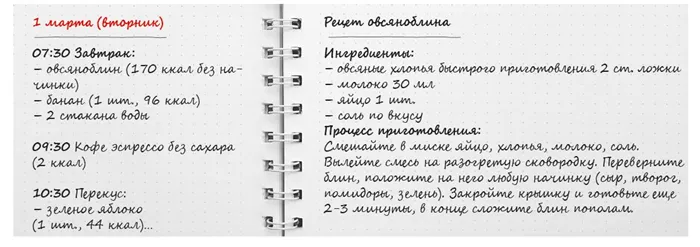 1 марта (вторник)
07:30 Завтрак:
– овсяноблин (170 ккал без на-
чинки)
– банан (1 шт., 96 ккал)
– 2 стакана воды
09:30 Кофе эспрессо без сахара
(2 ккал)
10:30 Перекус:
– зеленое яблоко
(1 шт., 44 ккал)...
Рецет овсяноблина
Ингредиенты:
– овсяные хлопья быстрого приготовления 2 ст. ложки
– молоко 30 мл
– яйцо 1 шт.
– соль по вкусу
Процесс приготовления:
Смешайте в миске яйцо, хлопья, молоко, соль.
Вылейте смесь на разогретую сковородку. Переверните
блин, положите на него любую начинку (сыр, творог,
помидоры, зелень). Закройте крышку и готовьте еще
2–3 минуты, в конце сложите блин пополам.